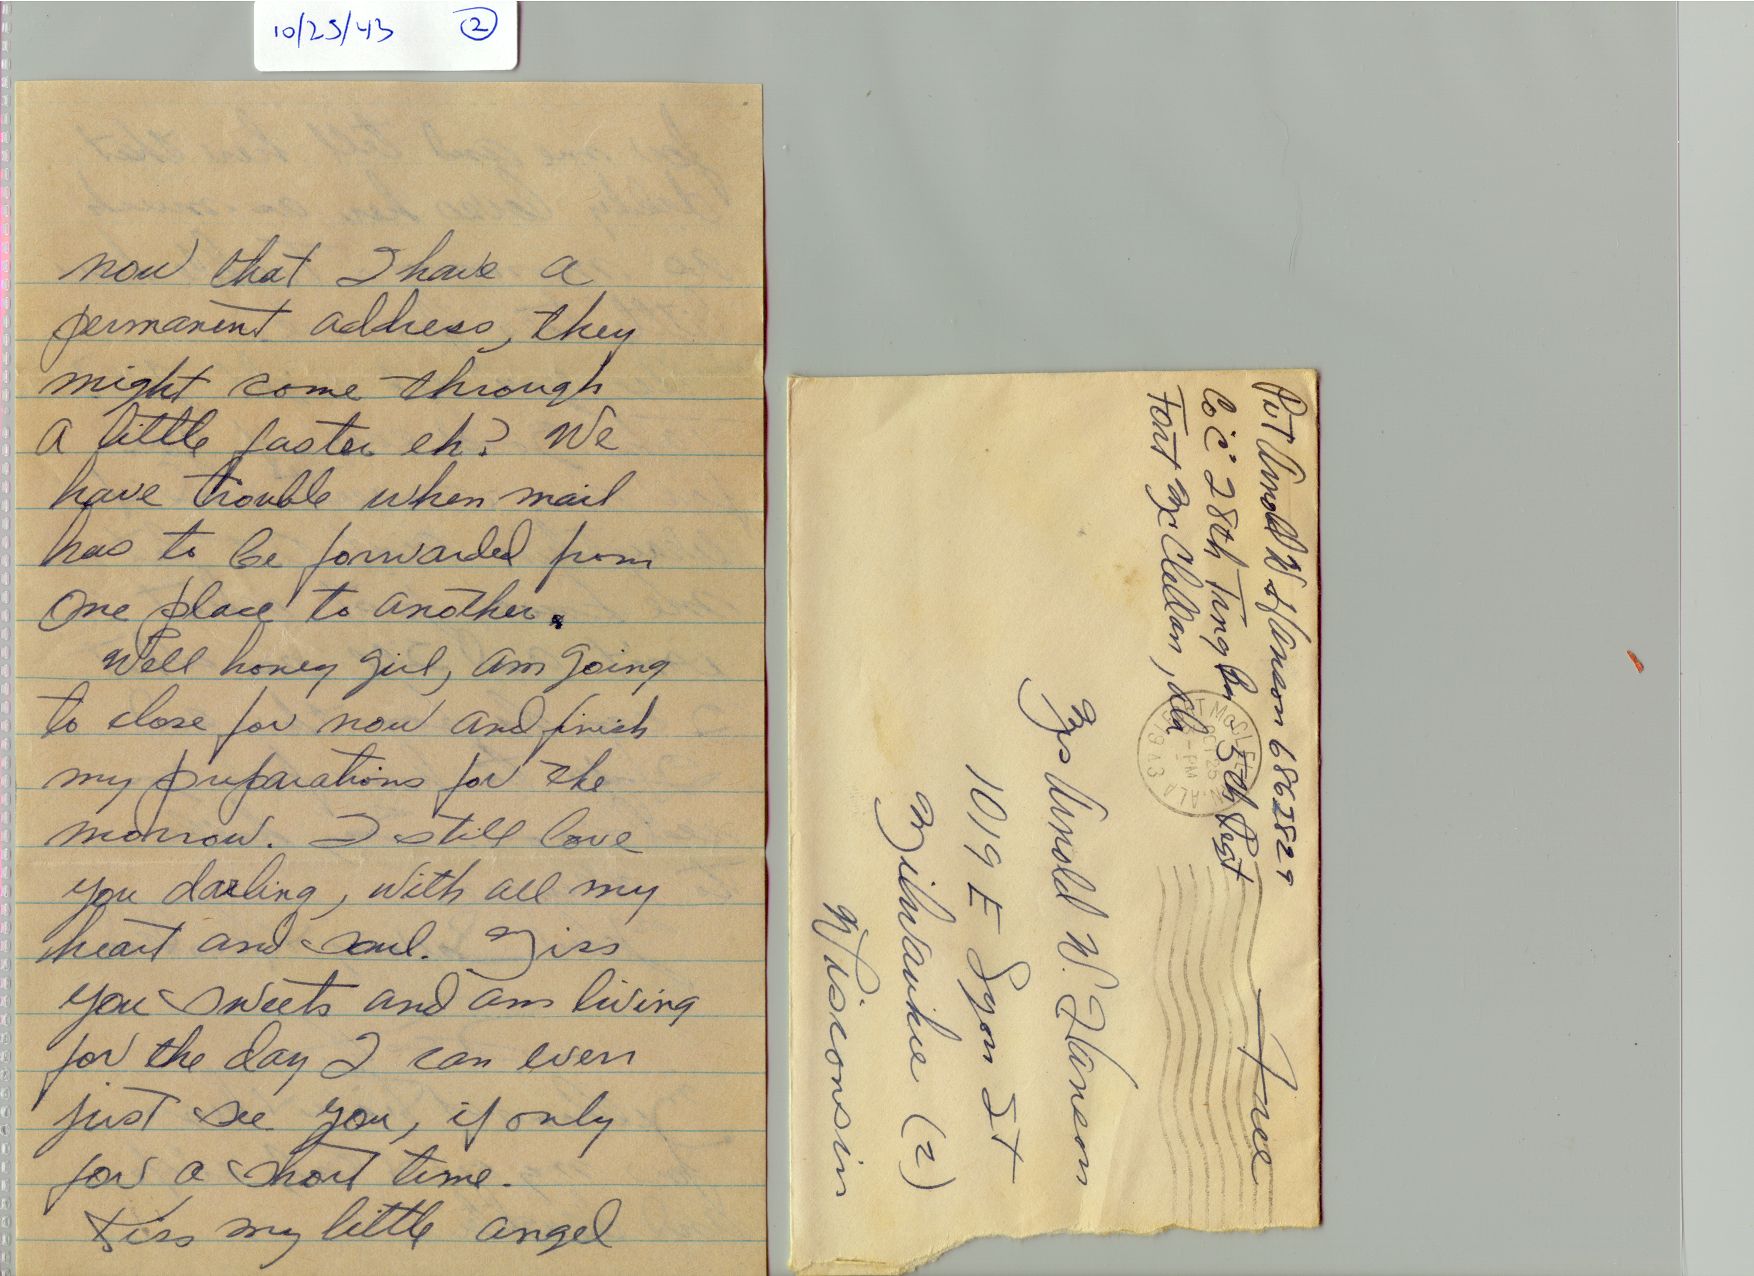 10/25/43 2
now that I have a
permanent address, they
might come through
a little faster eh? We
have trouble when mail
has to be forwarded from
one place to another.
Well honey girl, am going
to close for now and finish
my preparations for the
morrow. I still love
you darling, with all my
heart and soul. Miss
you sweets and am living
for the day I can even
just see you, if only
for a short time.
Kiss my little angel
Pvt Arnold W Hanson
Co "C" 28th Trng Bn 5th Regt
Fort McClellan, Ala
Free
FT McCLELLAN, ALA
OCT 25
PM
1943
Mrs Arnold W. Hanson
1019 E Lyon St
Milwaukee (2)
Wisconsin